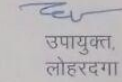 उपायुक्त,
लोहरदगा